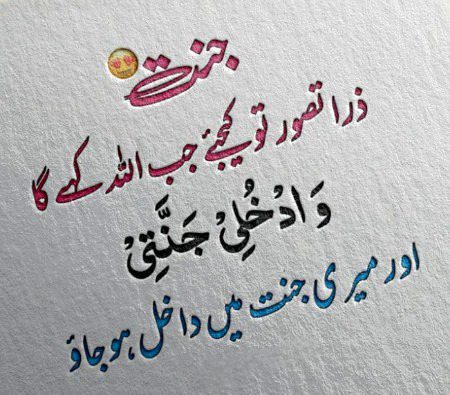 جنت
ذرا تصور تو کیجئے جب اللہ کہے گا
وَادْخُلِیْ جَنَّتِیْ
اور میری جنت میں داخل ہو جاؤ